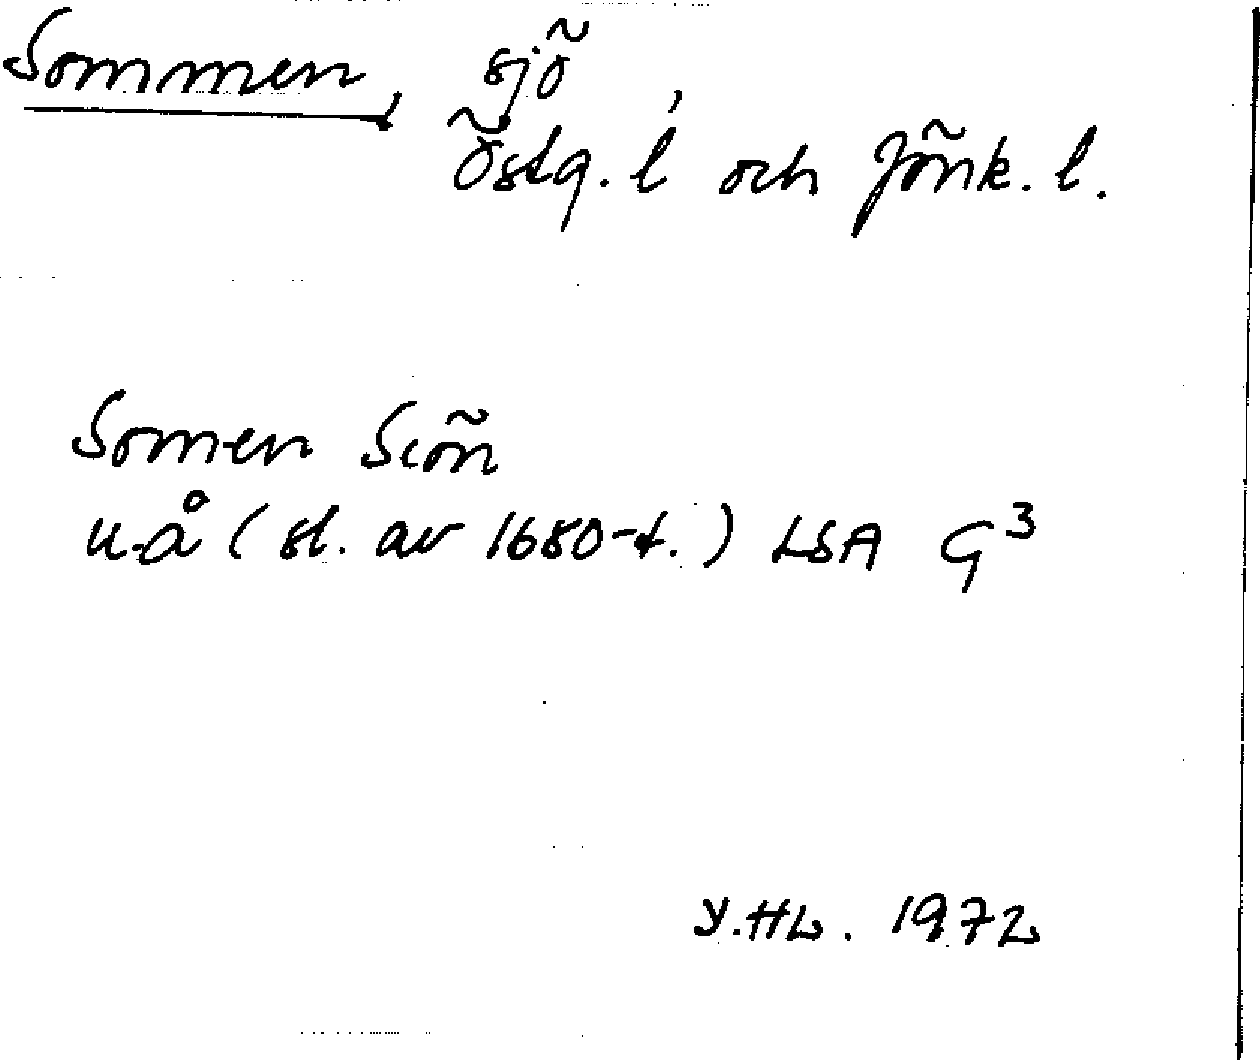 Sommen, sjö
Östg. l och Jönk. l.
Somen Siön
u.å (sl. av 1680-t.) LSA G3
Y.HL. 1972